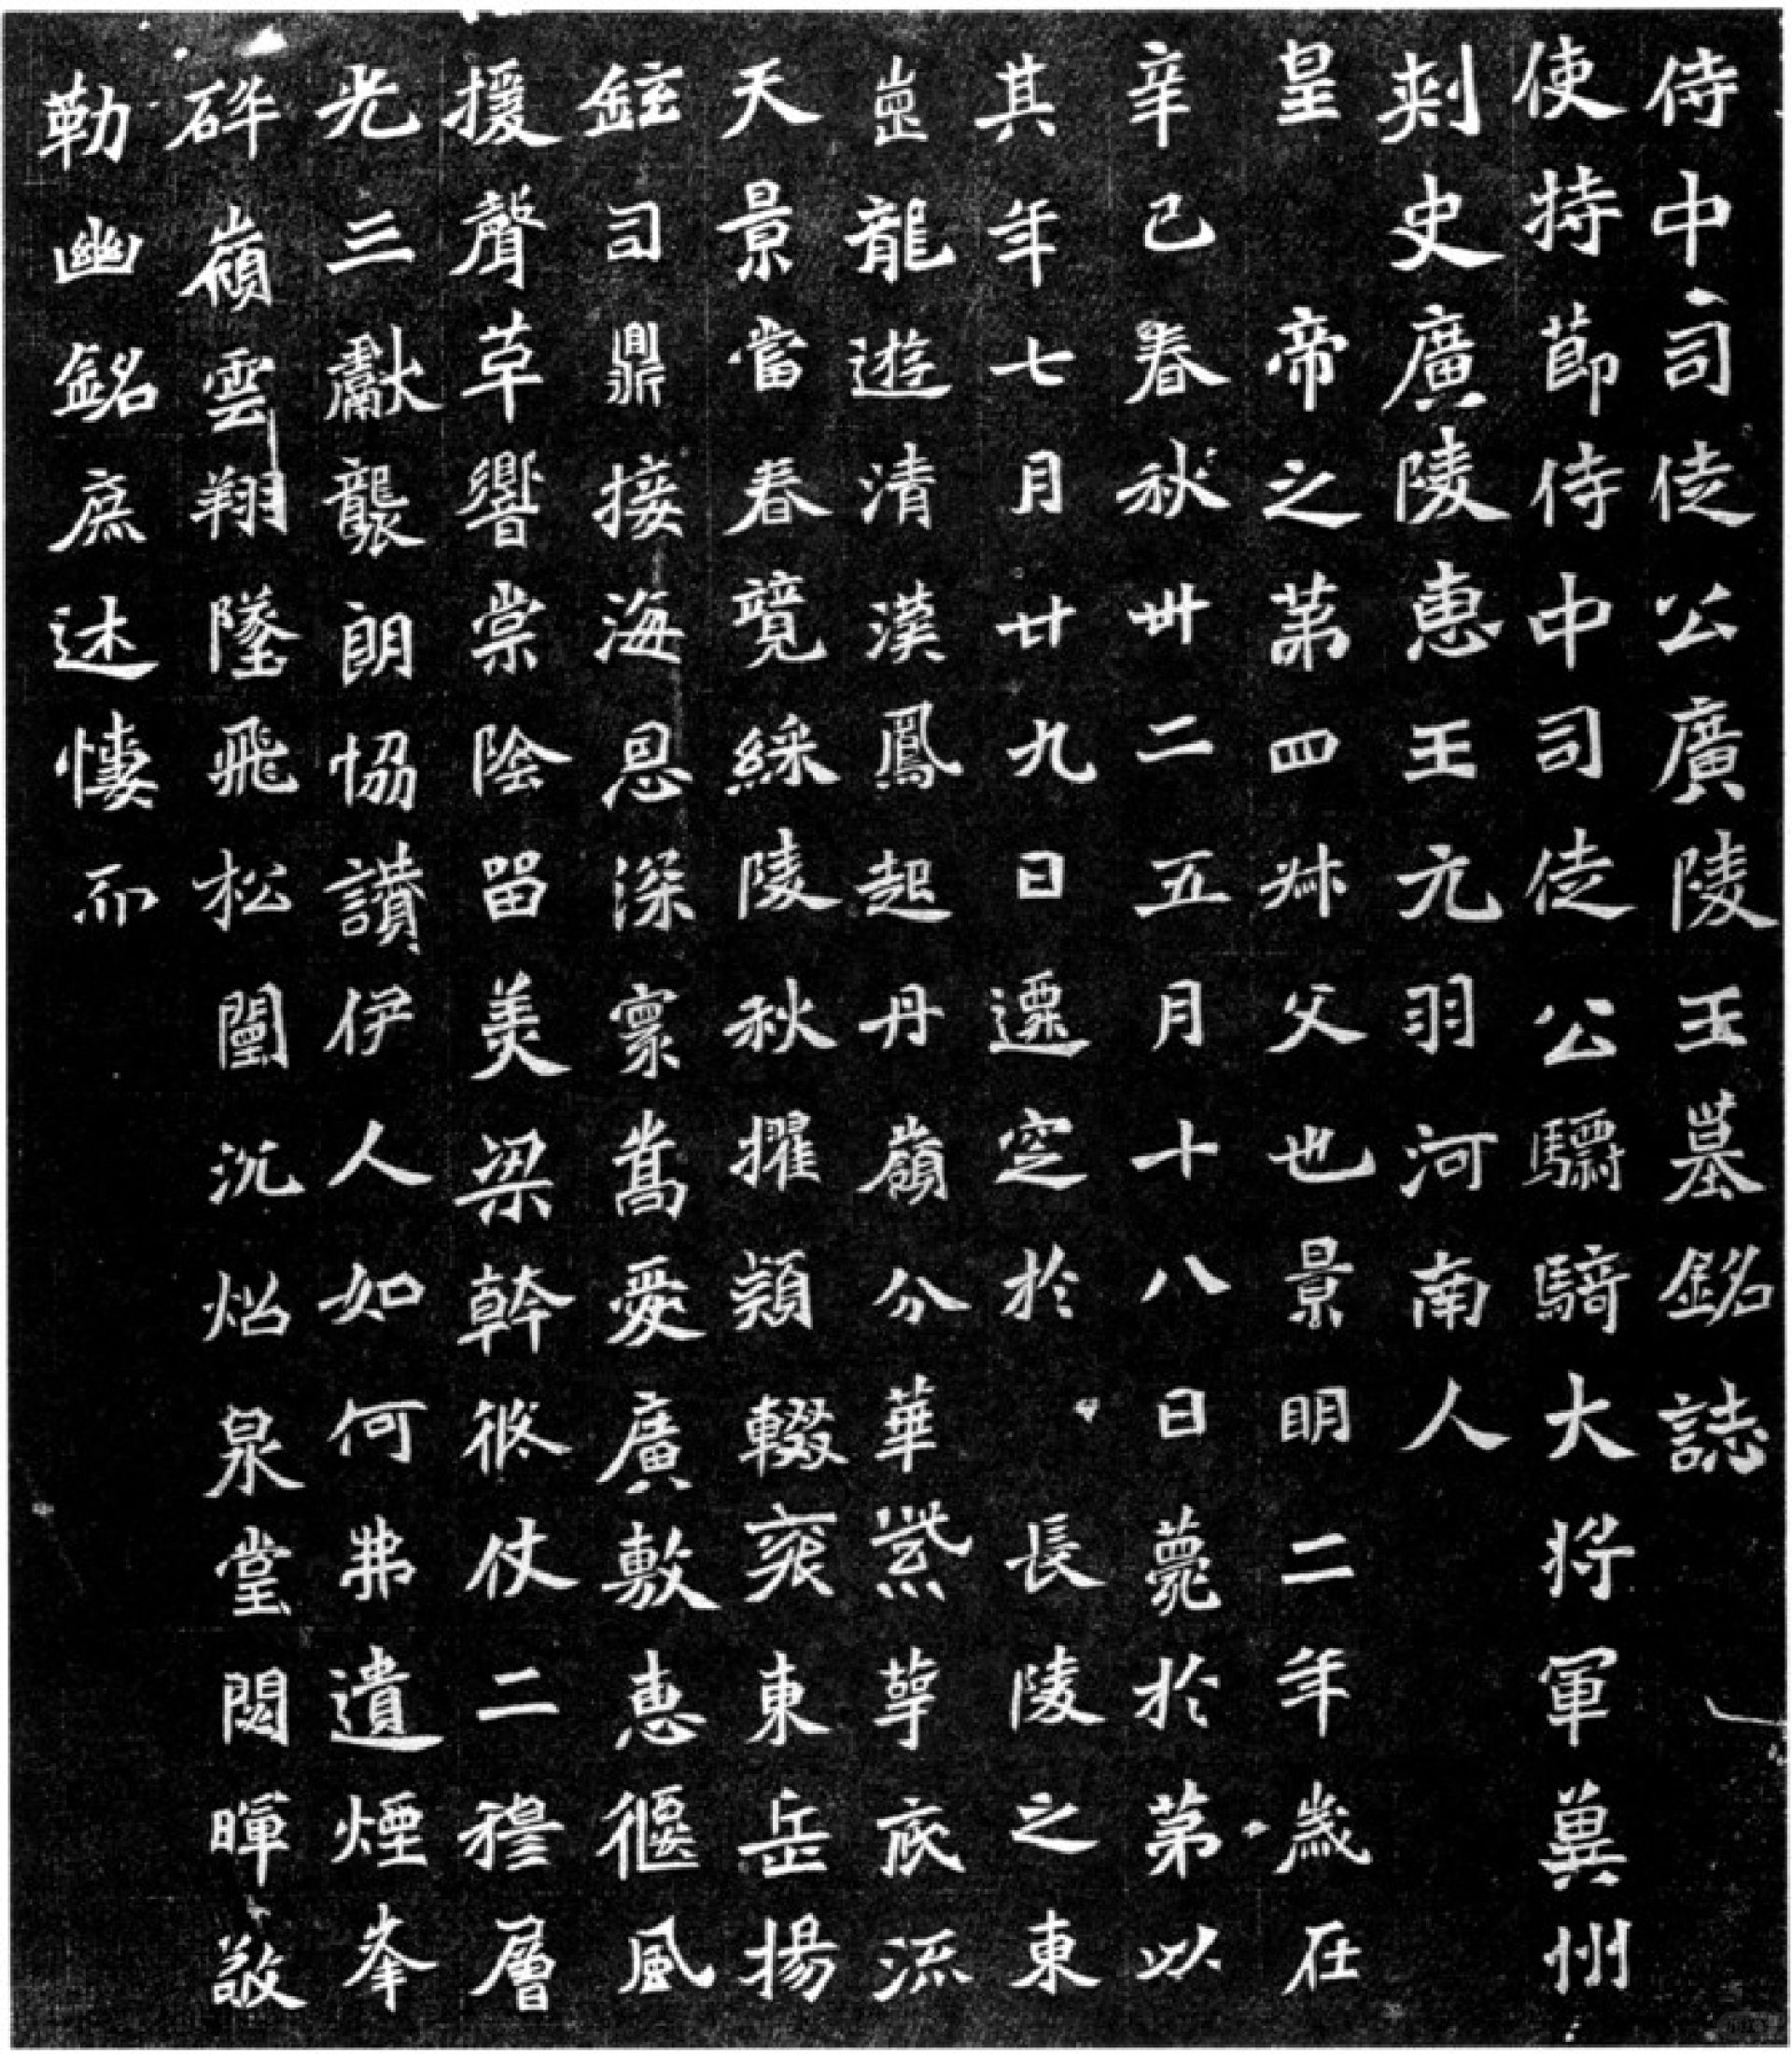 侍中司徒公廣陵王墓銘誌
使持節侍中司徒公驃騎大將軍冀州
刺史廣陵惠王元羽河南人
皇帝之第四叔父也景明二年歲在
辛巳春秋卅二五月十八日薨於第以
其年七月廿九日遷窆於長陵之東
崗龍遊清漢鳳起丹嶺分華紫萼底流
天景當春競綵陵秋擢穎輟衮東岳揚
鉉司鼎接海恩深寰嵩愛廣敷惠偃風
援聲草響棠陰留美梁幹終仗二穆層
光三獻襲朗協讚伊人如何弗遺煙峯
碎嶺雲翔墜飛松闈沉炤泉堂閟暉敬
勒幽銘庶述悽而